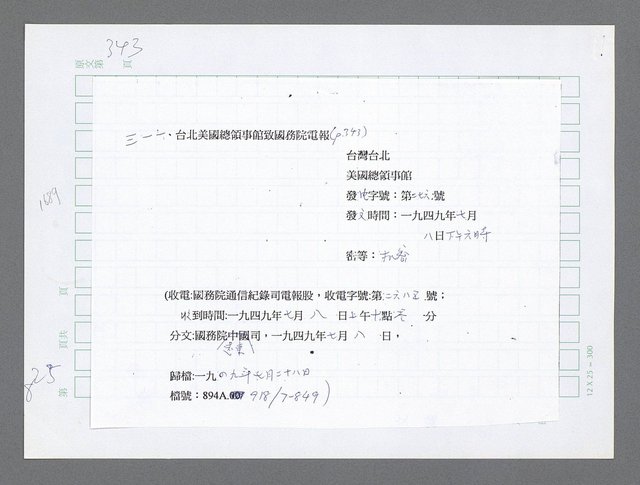 原文第343頁
三一六、台北美國總領事館致國務院電報(p.343)
台灣台北
美國總領事館
發電字號：第二七六號
發文時間：一九四九年七月
八日下午六時
密等：
1689
(收電:國務院通信紀錄司電報股，收電字號:第二六八五號；
收到時間:一九四九年七月八日上午十點 分
分文:國務院中國司，一九四九年七月八日，
遠東
歸檔:一九四九年七月二十八日
檔號：894A.00/7 918/7-849)
第825頁共 頁
12 X 25 = 300